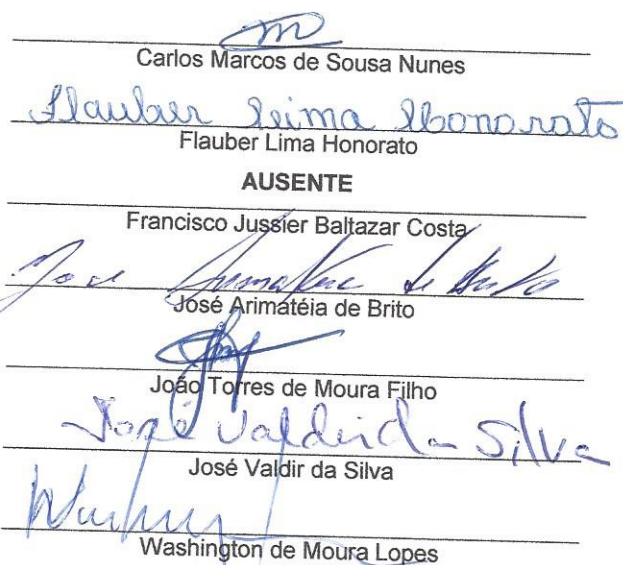 Carlos Marcos de Sousa Nunes
Flauber Lima Honorato
Flauber Lima Honorato
AUSENTE
Francisco Jussier Baltazar Costa
José Arimatéia de Brito
José Arimatéia de Brito
João Torres de Moura Filho
José Valdir da Silva
José Valdir da Silva
Washington de Moura Lopes